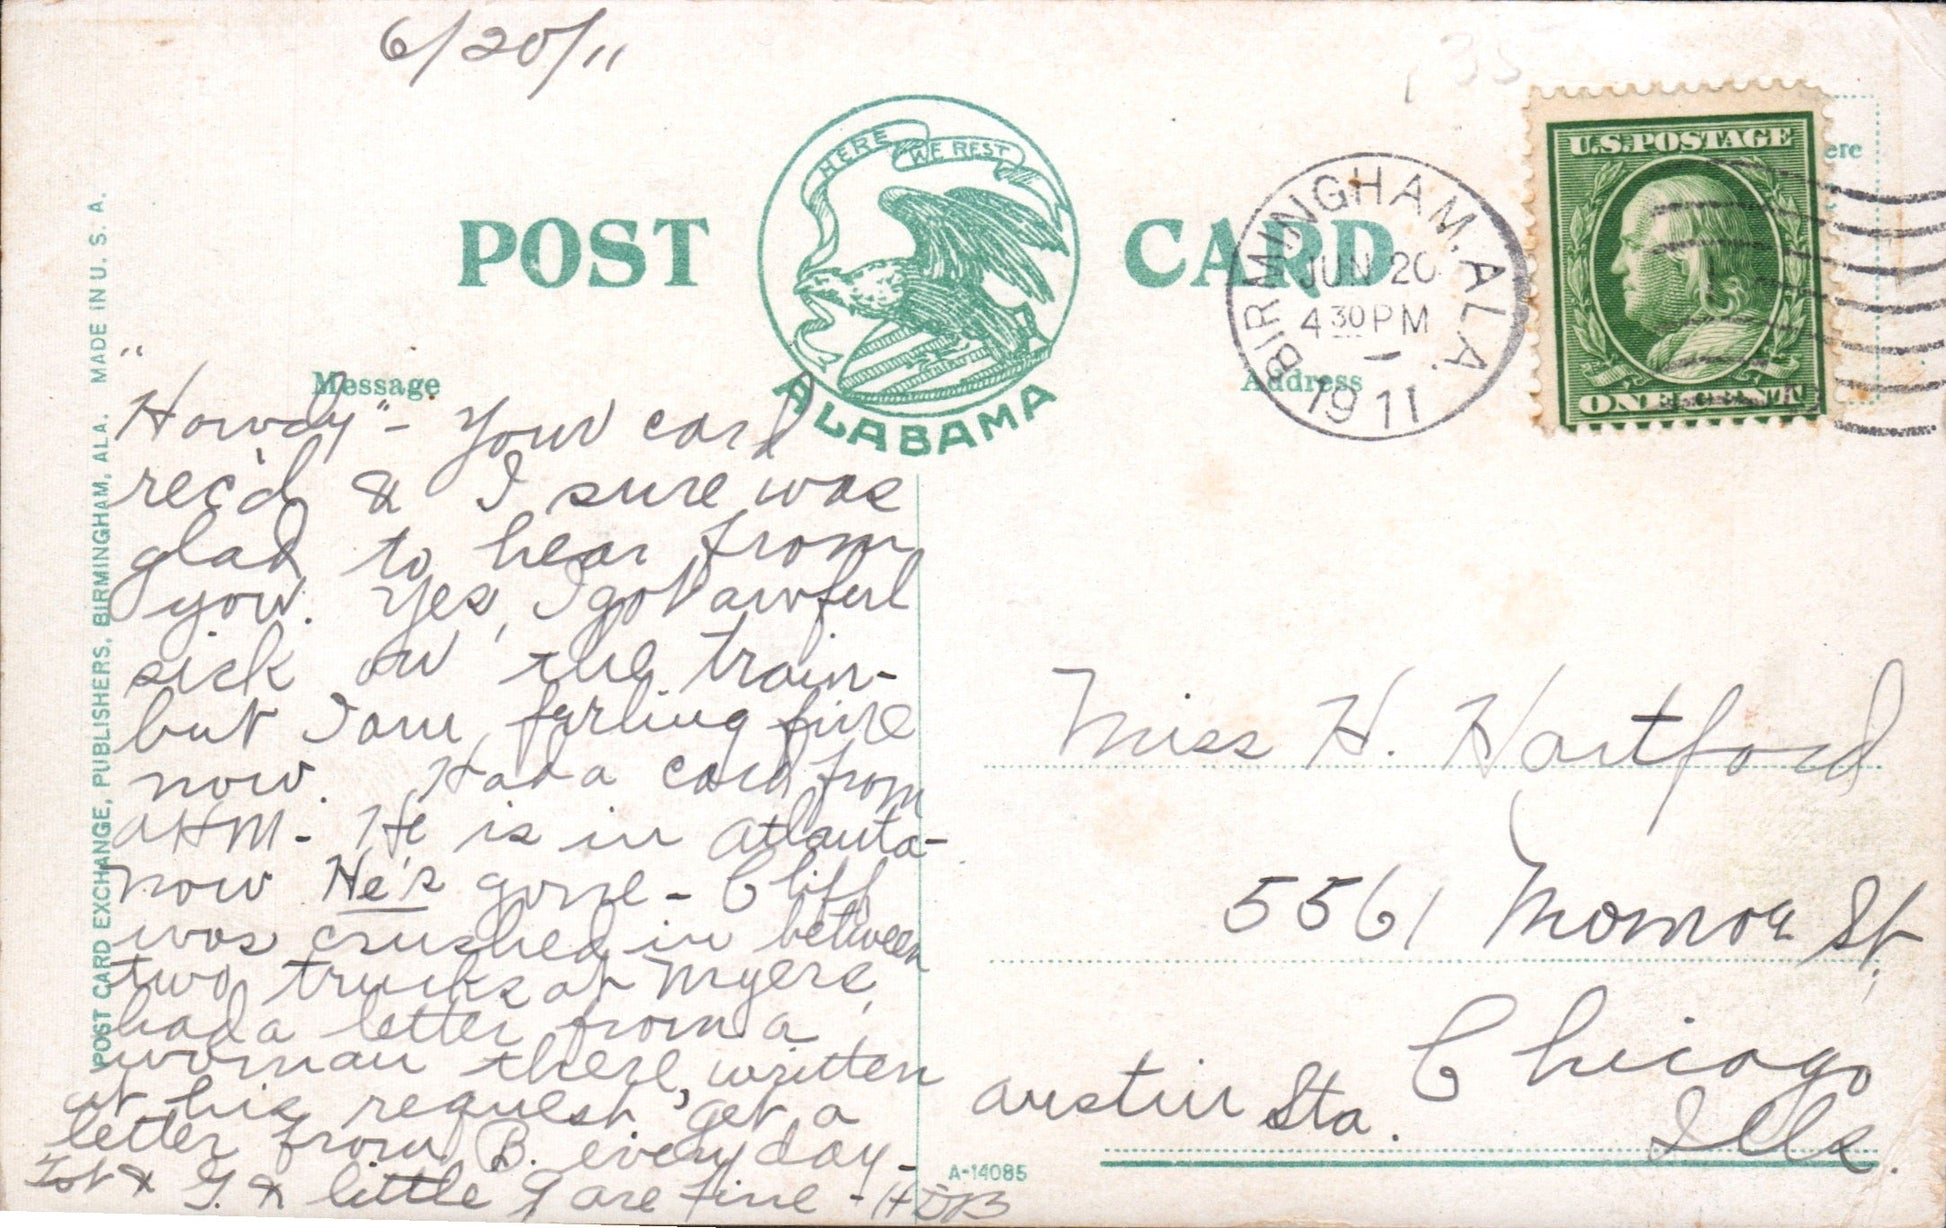 6/20/11
HERE WE REST
POST CARD
ALABAMA
BIRMINGHAM, ALA.
JUN 20
4 30 PM
1911
U.S. POSTAGE
ONE CENT
ere
Message
Address
"Howdy" - Your card
rec'd & I sure was
glad to hear from
you. Yes, I got awful
sick on the train -
but I am feeling fine
now. Had a card from
AHM - He is in Atlanta -
now He's gone - Cliff
was crushed in between
two trucks at Myers,
had a letter from a
woman there, written
at his request, get a
letter from B. every day -
& G. & little G are fine - HDB
Miss H. Hartford
5561 Monroe St.
Chicago
Austin Sta.
Ills.
A-14085
POST CARD EXCHANGE, PUBLISHERS, BIRMINGHAM, ALA. MADE IN U. S. A.